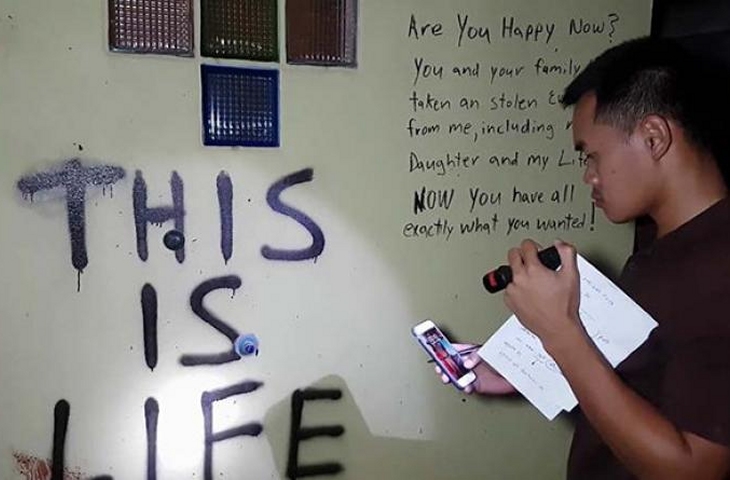 Are You Happy Now?
You and your family
taken an stolen
from me, including
Daughter and my
NOW You have all
exactly what you wanted!
THIS
IS
LIFE